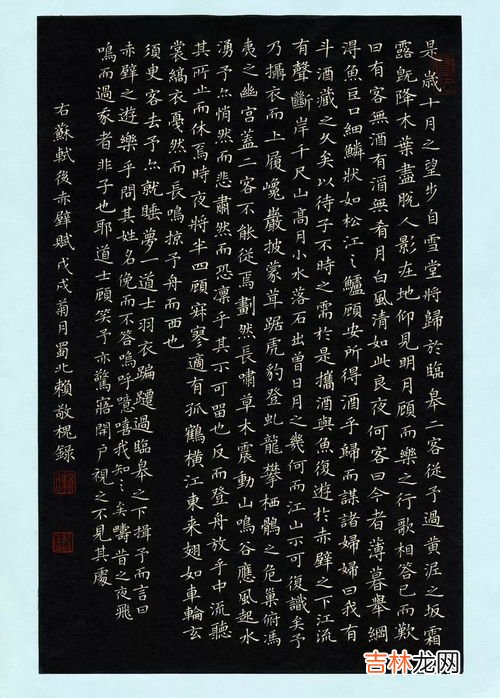 是歲十月之望步自雪堂將歸於臨皋二客從予過黃泥之坂霜
露既降木葉盡脫人影在地仰見明月顧而樂之行歌相答已而歎
曰有客無酒有酒無肴月白風清如此良夜何客曰今者薄暮舉網
得魚巨口細鱗狀如松江之鱸顧安所得酒乎歸而謀諸婦婦曰我有
斗酒藏之久矣以待子不時之需於是攜酒與魚復遊於赤壁之下江流
有聲斷岸千尺山高月小水落石出曾日月之幾何而江山不可復識矣予
乃攝衣而上履巉巖披蒙茸踞虎豹登虬龍攀栖鶻之危巢俯馮
夷之幽宮蓋二客不能從焉劃然長嘯草木震動山鳴谷應風起水
湧予亦悄然而悲肅然而恐凜乎其不可留也反而登舟放乎中流聽
其所止而休焉時夜將半四顧寂寥適有孤鶴橫江東来翅如車輪玄
裳縞衣戛然而長鳴掠予舟而西也
須臾客去予亦就睡夢一道士羽衣蹁躚過臨皋之下揖予而言曰
赤壁之遊樂乎問其姓名俛而不答嗚呼噫嘻我知之矣疇昔之夜飛
鳴而過我者非子也耶道士顧笑予亦驚寤開戶視之不見其處
右蘇軾後赤壁賦戊戌菊月蜀北賴敬槐錄
吉林龙网